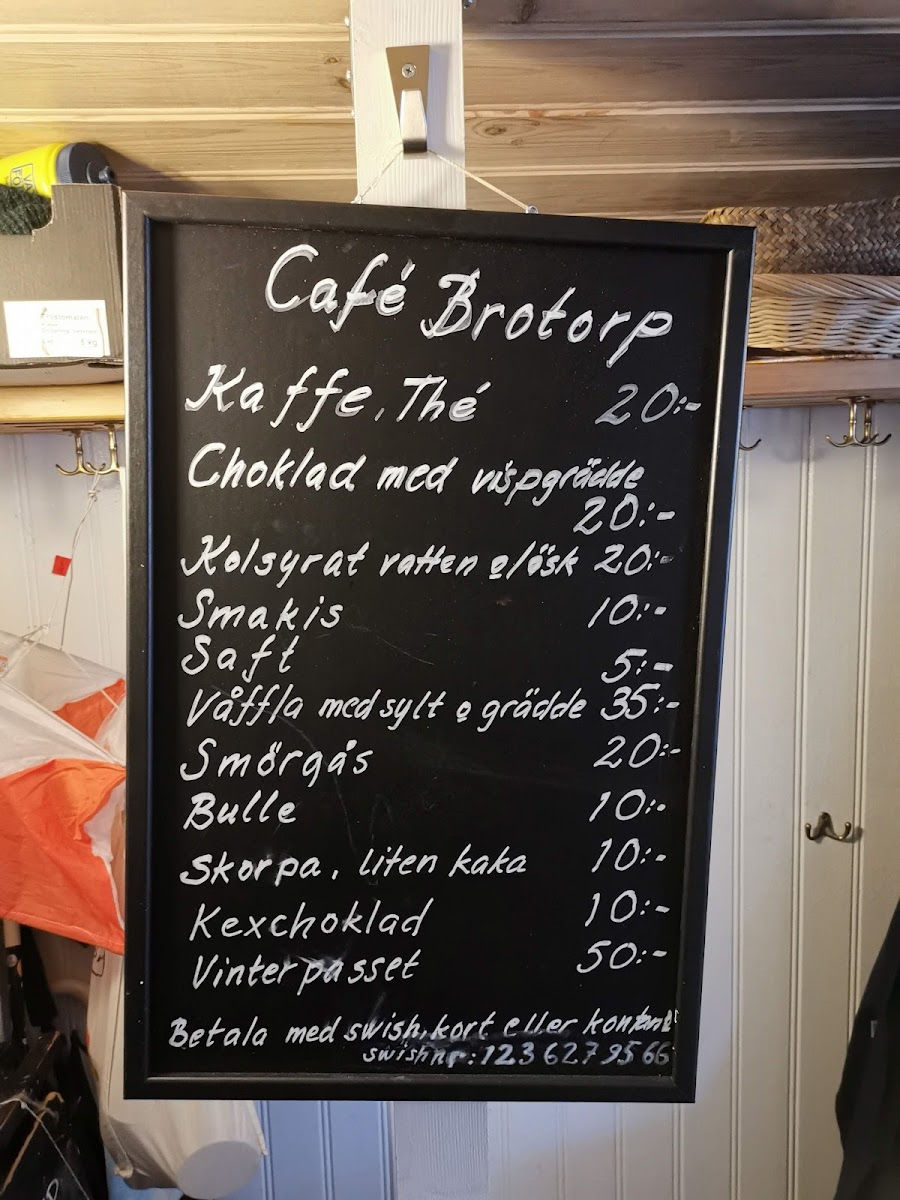 Café Brotorp
Kaffe, Thé 20:-
Choklad med vispgrädde
20:-
Kolsyrat vatten o läsk 20:-
Smakis 10:-
Saft 5:-
Våffla med sylt o grädde 35:-
Smörgås 20:-
Bulle 10:-
Skorpa, liten kaka 10:-
Kexchoklad 10:-
Vinterpasset 50:-
Betala med swish, kort eller kontant
swishnr: 123 627 95 66
5 kg